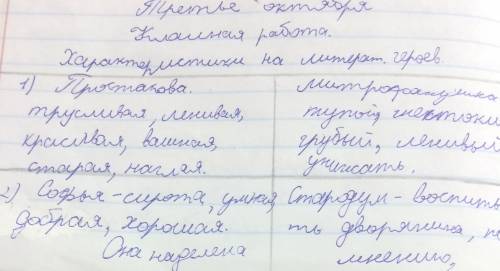 Третье октября
Классная работа.
Характеристики на литерат. героев
1) Простакова.
трусливая, ленивая,
красивая, важная,
старая, наглая.
Митрофанушка
тупой, жестоки
грубый, ленивый
унижать.
2) Софья - сирота, умная,
добрая, хорошая.
Она наделена
Стародум - воспить
ть дворянина, по
мнению,